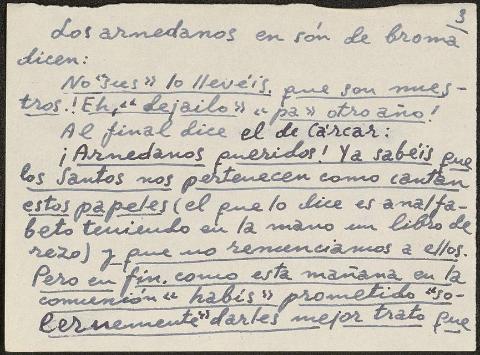 3
Los arnedanos en són de broma
dicen:
No "sus" lo llevéis, que son nues-
tros.! Eh, "dejailo" "pa" otro año!
Al final dice el de Cárcar:
¡Arnedanos queridos! Ya sabéis que
los Santos nos pertenecen como cantan
estos papeles (el que lo dice es analfa-
beto teniendo en la mano un libro de
rezo) y que no renunciamos a ellos.
Pero en fin, como esta mañana en la
comunión "habés" prometido "so-
lernemente" darles mejor trato que